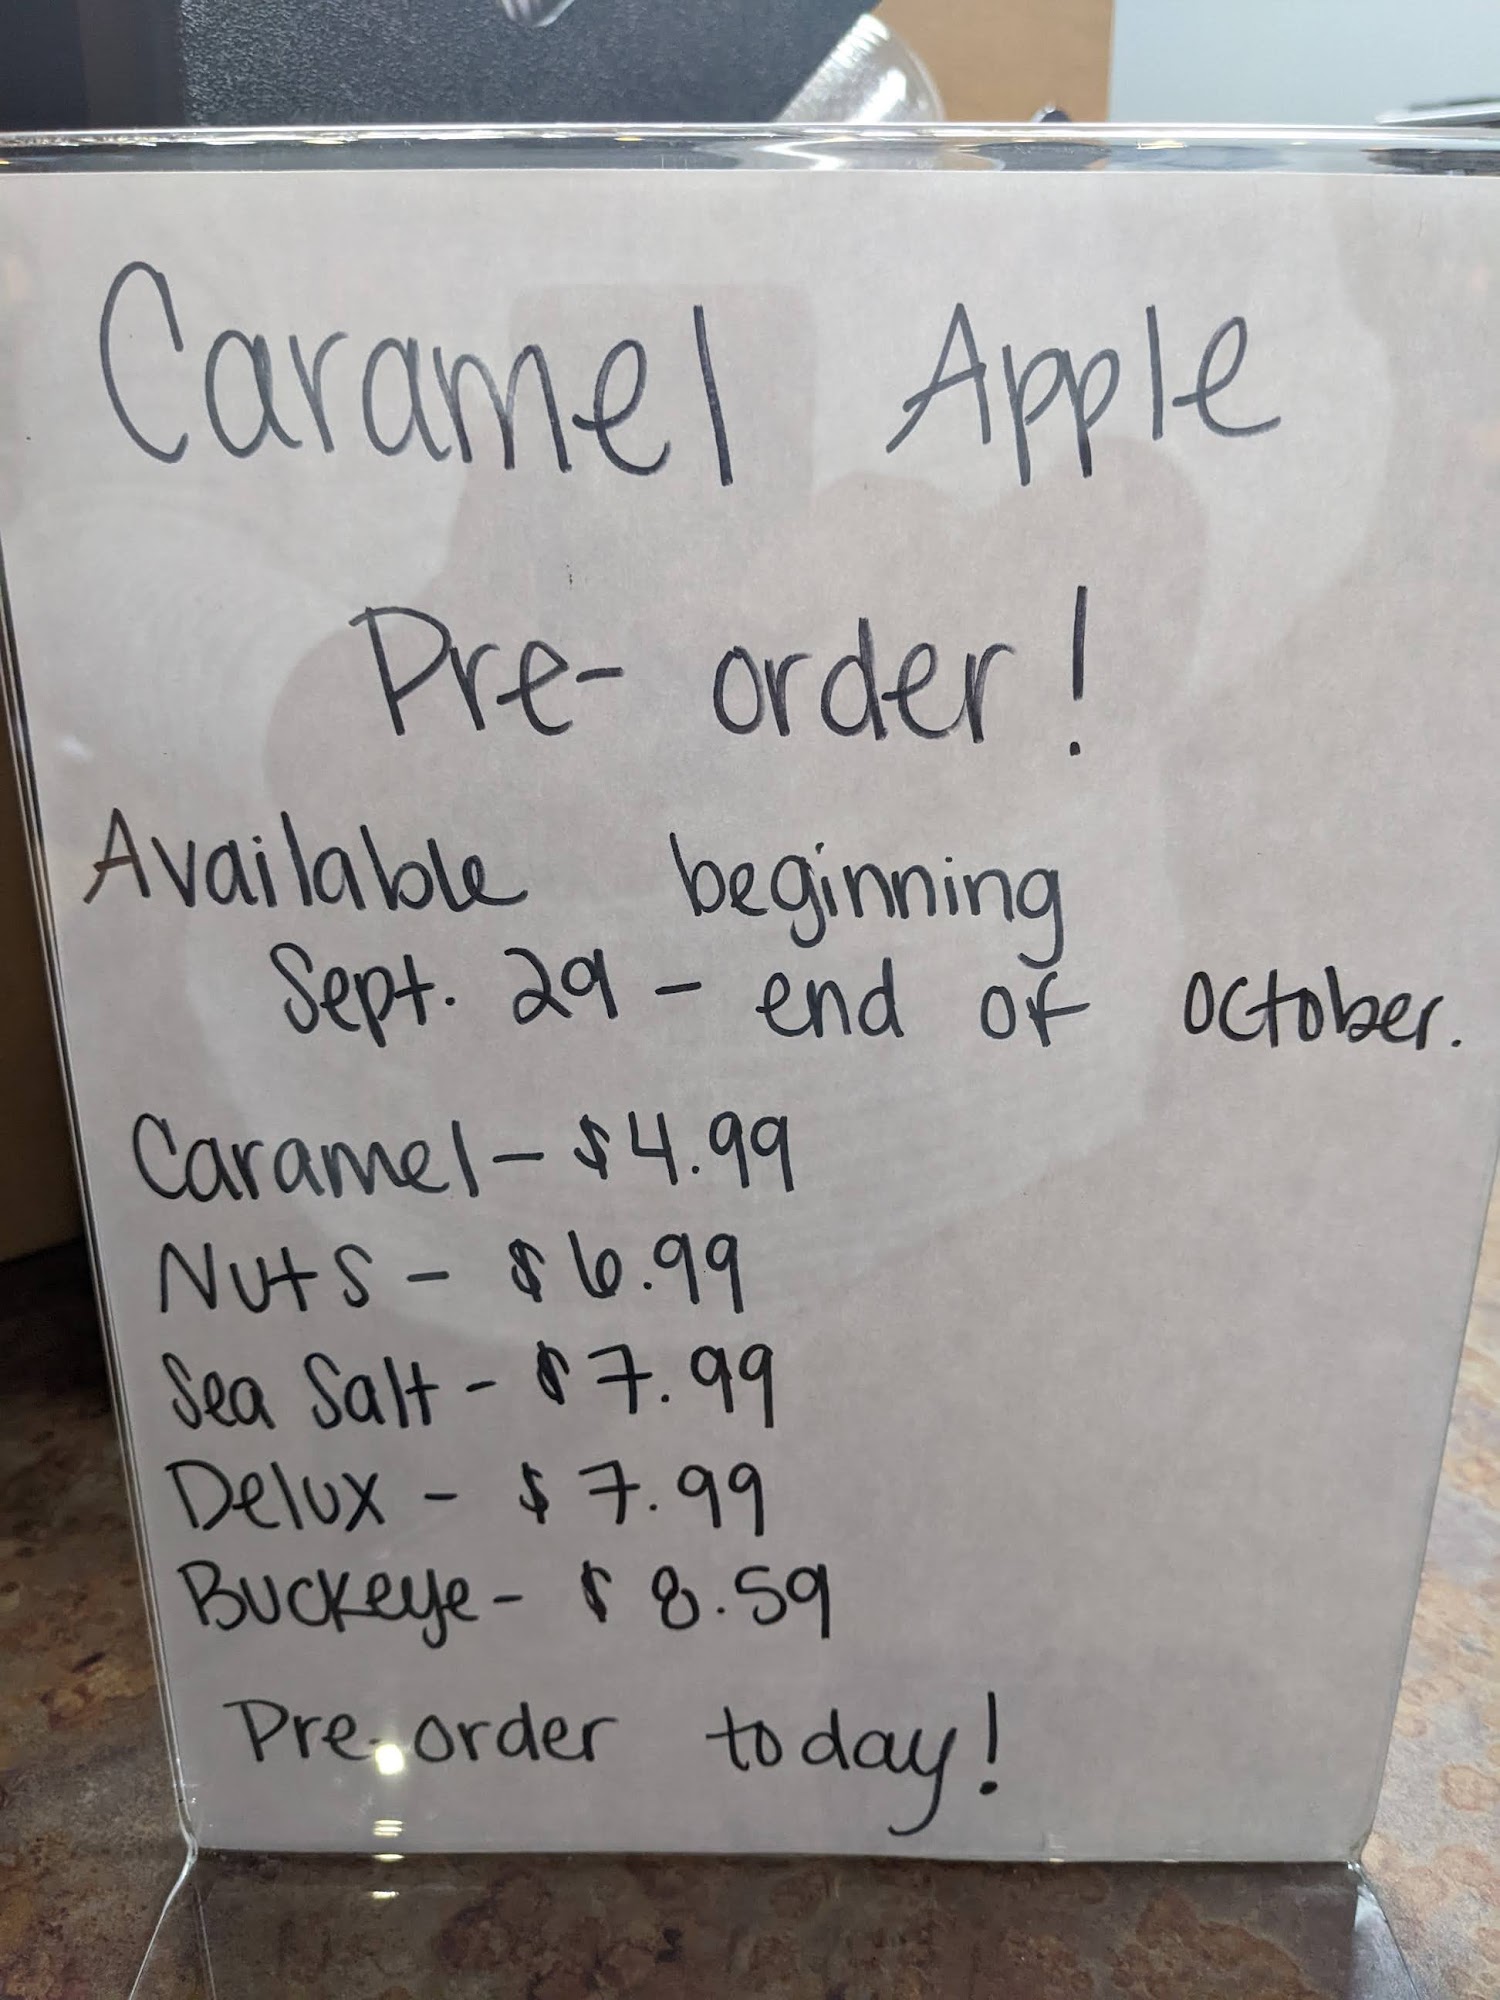 Caramel Apple
Pre-order!
Available beginning
Sept. 29 - end of october.
Caramel - $4.99
Nuts - $6.99
Sea Salt - $7.99
Delux - $7.99
Buckeye - $8.59
Pre-order today!